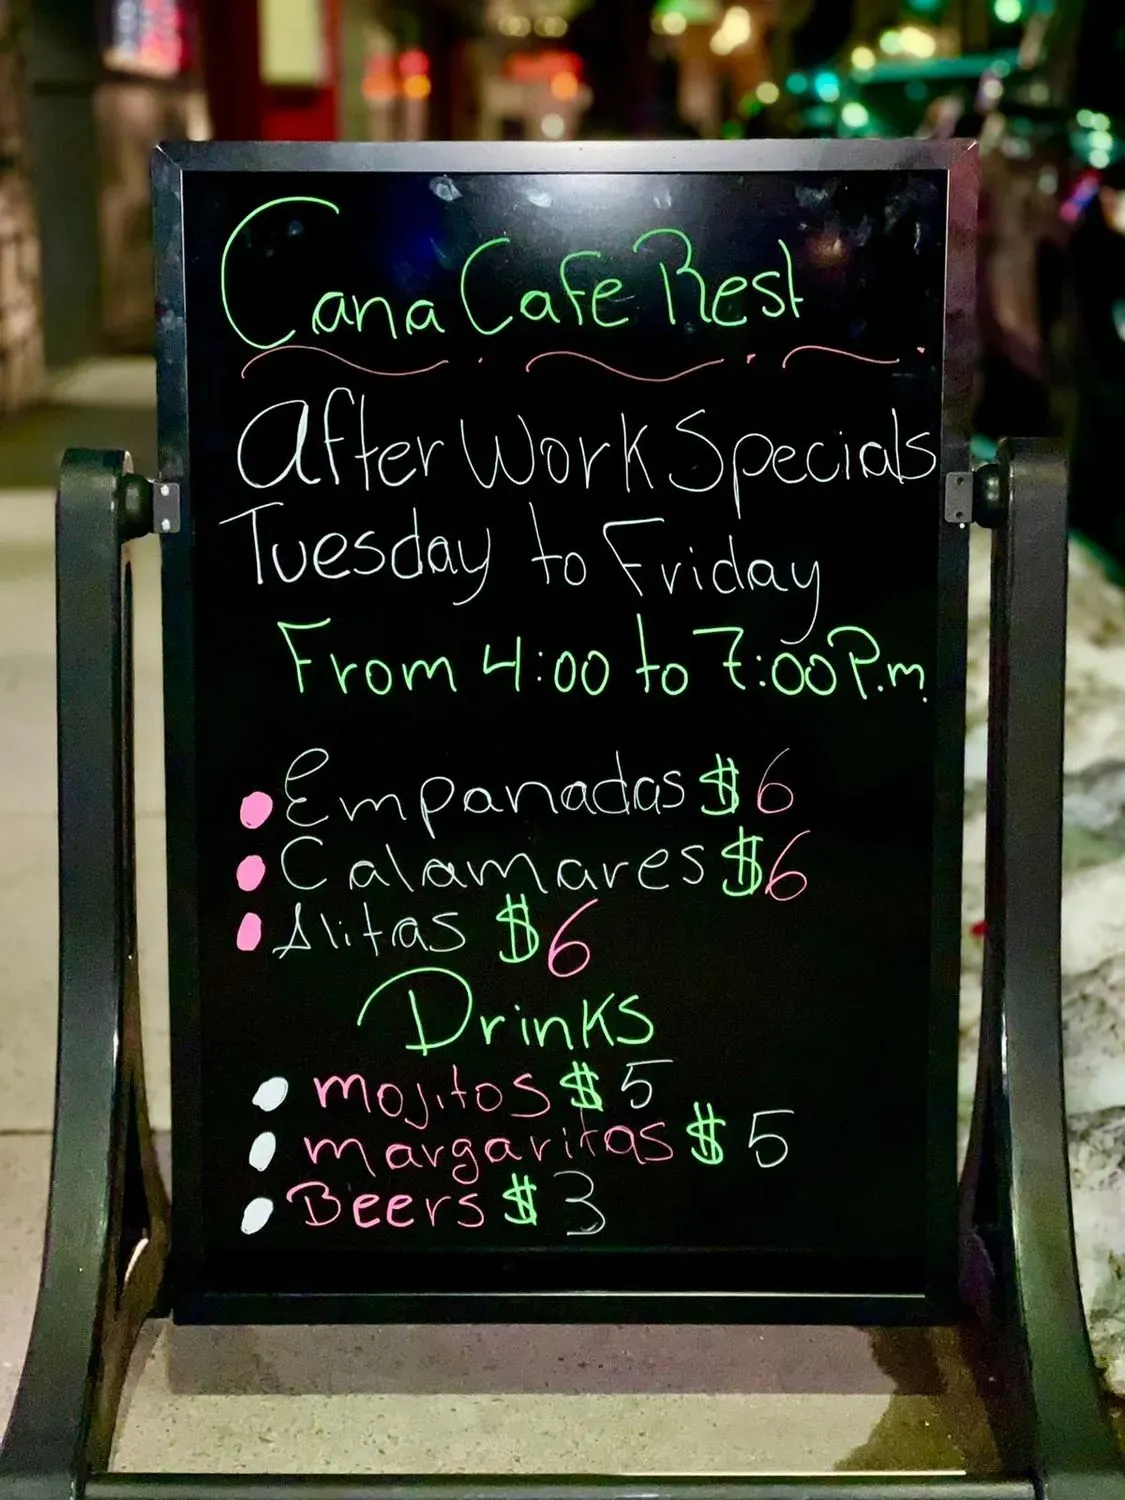 Cana Cafe Rest
After Work Specials
Tuesday to Friday
From 4:00 to 7:00 P.m.
Empanadas $6
Calamares $6
Alitas $6
Drinks
mojitos $5
margaritas $5
Beers $3